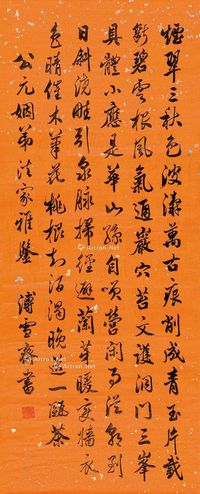 煙翠三秋色波濤萬古痕削成青玉片截
斷碧雲根風氣通巖穴苔文護洞門三峯
具體小應是華山孫自咲營閒事從朝到
日斜澆畦引泉脉掃徑避蘭芽暖變牆衣
色晴催木筆花桃根知酒渴晚一甌茶
公元姻弟法家雅鑒
溥雪齋書